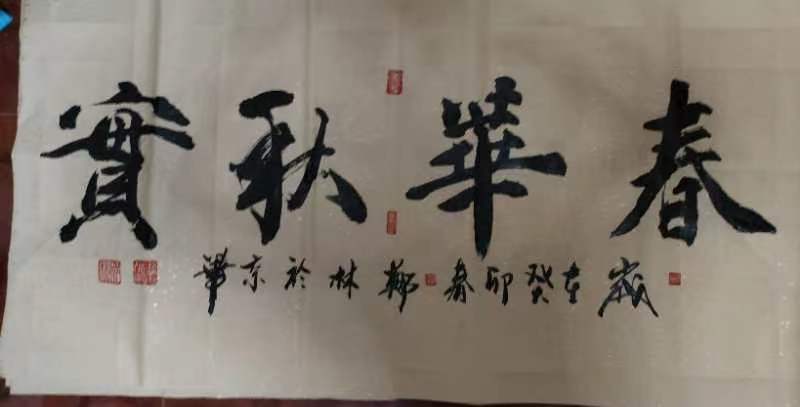 春華秋實
歲在癸卯春 林於京華